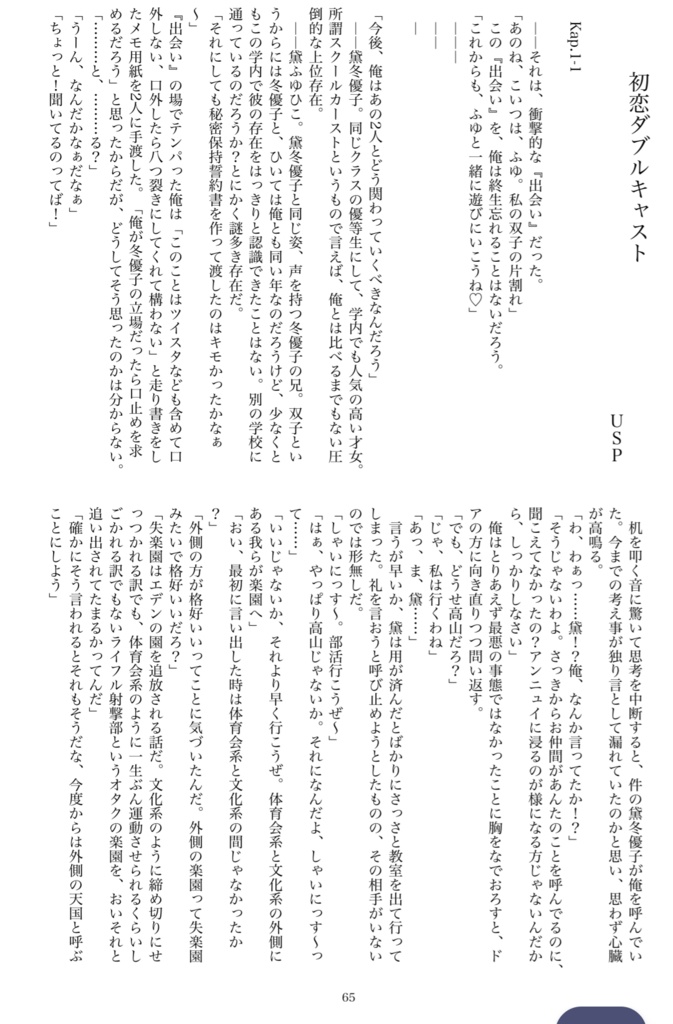 初恋ダブルキャスト
USP
Kap.1-1
――それは、衝撃的な『出会い』だった。
「あのね、こいつは、ふゆ。私の双子の片割れ」
この『出会い』を、俺は終生忘れることはないだろう。
「これからも、ふゆと一緒に遊びにいこうね♡」
―――
――
―
「今後、俺はあの2人とどう関わっていくべきなんだろう」
――黛冬優子。同じクラスの優等生にして、学内でも人気の高い才女。
所謂スクールカーストというもので言えば、俺とは比べるまでもない圧
倒的な上位存在。
――黛ふゆひこ。黛冬優子と同じ姿、声を持つ冬優子の兄。双子とい
うからには冬優子と、ひいては俺とも同い年なのだろうけど、少なくと
もこの学内で彼の存在をはっきりと認識できたことはない。別の学校に
通っているのだろうか?とにかく謎多き存在だ。
「それにしても秘密保持誓約書を作って渡したのはキモかったかなぁ
～」
『出会い』の場でテンパった俺は「このことはツイスタなども含めて口
外しない、口外したら八つ裂きにしてくれて構わない」と走り書きをし
たメモ用紙を2人に手渡した。「俺が冬優子の立場だったら口止めを求
めるだろう」と思ったからだが、どうしてそう思ったのかは分からない。
「………と、………る?」
「うーん、なんだかなぁだなぁ」
「ちょっと!聞いてるのってば!」
机を叩く音に驚いて思考を中断すると、件の黛冬優子が俺を呼んでい
た。今までの考え事が独り言として漏れていたのかと思い、思わず心臓
が高鳴る。
「わ、わぁっ……黛!?俺、なんか言ってたか!?」
「そうじゃないわよ。さっきからお仲間があんたのことを呼んでるのに、
聞こえてなかったの?アンニュイに浸るのが様になる方じゃないんだか
ら、しっかりしなさい」
俺はとりあえず最悪の事態ではなかったことに胸をなでおろすと、ド
アの方に向き直りつつ問い返す。
「でも、どうせ高山だろ?」
「じゃ、私は行くわね」
「あっ、ま、黛……」
言うが早いか、黛は用が済んだとばかりにさっさと教室を出て行って
しまった。礼を言おうと呼び止めようとしたものの、その相手がいない
のでは形無しだ。
「しゃいにっす～。部活行こうぜ～」
「はぁ、やっぱり高山じゃないか。それになんだよ、しゃいにっす～っ
て……」
「いいじゃないか、それより早く行こうぜ。体育会系と文化系の外側に
ある我らが楽園へ」
「おい、最初に言い出した時は体育会系と文化系の間じゃなかったか
?」
「外側の方が格好いいってことに気づいたんだ。外側の楽園って失楽園
みたいで格好いいだろ?」
「失楽園はエデンの園を追放される話だ。文化系のように締め切りにせ
っつかれる訳でも、体育会系のように一生ぶん運動させられるくらいし
ごかれる訳でもないライフル射撃部というオタクの楽園を、おいそれと
追い出されてたまるかってんだ」
「確かにそう言われるとそれもそうだな、今度からは外側の天国と呼ぶ
ことにしよう」
65